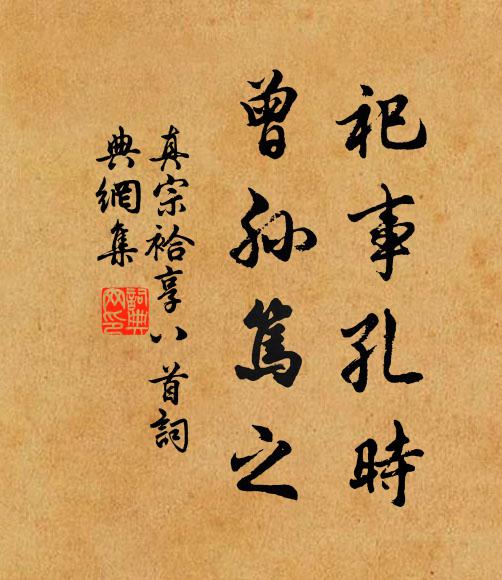 祀事孔時
曾孫篤之
真宗祫享八首詞
典網集
詞典網印